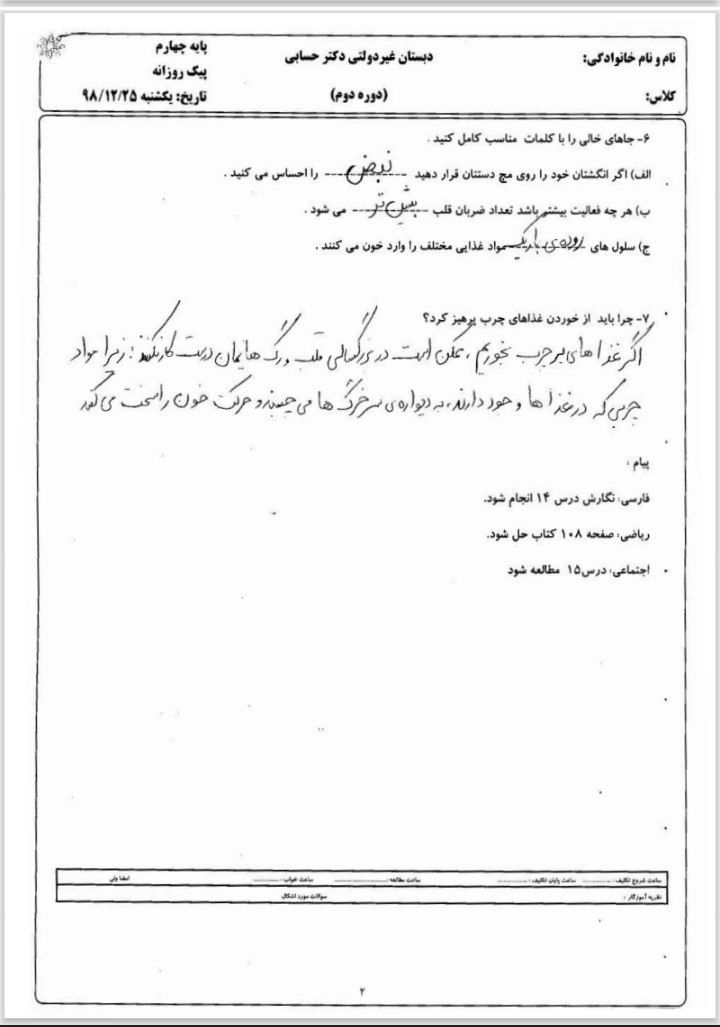 نام و نام خانوادگی: دبستان غیردولتی دکتر حسابی پایه چهارم
پیک روزانه
کلاس: (دوره دوم) تاریخ: یکشنبه ۹۸/۱۲/۲۵
۶- جاهای خالی را با کلمات مناسب کامل کنید .
الف) اگر انگشتان خود را روی مچ دستتان قرار دهید نبض را احساس می کنید .
ب) هر چه فعالیت بیشتر باشد تعداد ضربان قلب بیش تر می شود .
ج) سلول های روده ی باریک مواد غذایی مختلف را وارد خون می کنند .
۷- چرا باید از خوردن غذاهای چرب پرهیز کرد؟
اگر غذا های پر چرب بخوریم ، ممکن است در بزرگسالی قلب و رگ هایمان درست کار نکنند ؛ زیرا مواد
چربی که در غذا ها وجود دارند، به دیواره ی سرخرگ ها می چسبند و حرکت خون را سخت می کند
پیام :
فارسی: نگارش درس ۱۴ انجام شود.
ریاضی: صفحه ۱۰۸ کتاب حل شود.
اجتماعی: درس۱۵ مطالعه شود
ساعت شروع تکلیف : ............ ساعت پایان تکلیف : ............ ساعت مطالعه : ............ ساعت خواب : ............ امضا ولی
نظریه آموزگار : سوالات مورد اشکال
۲